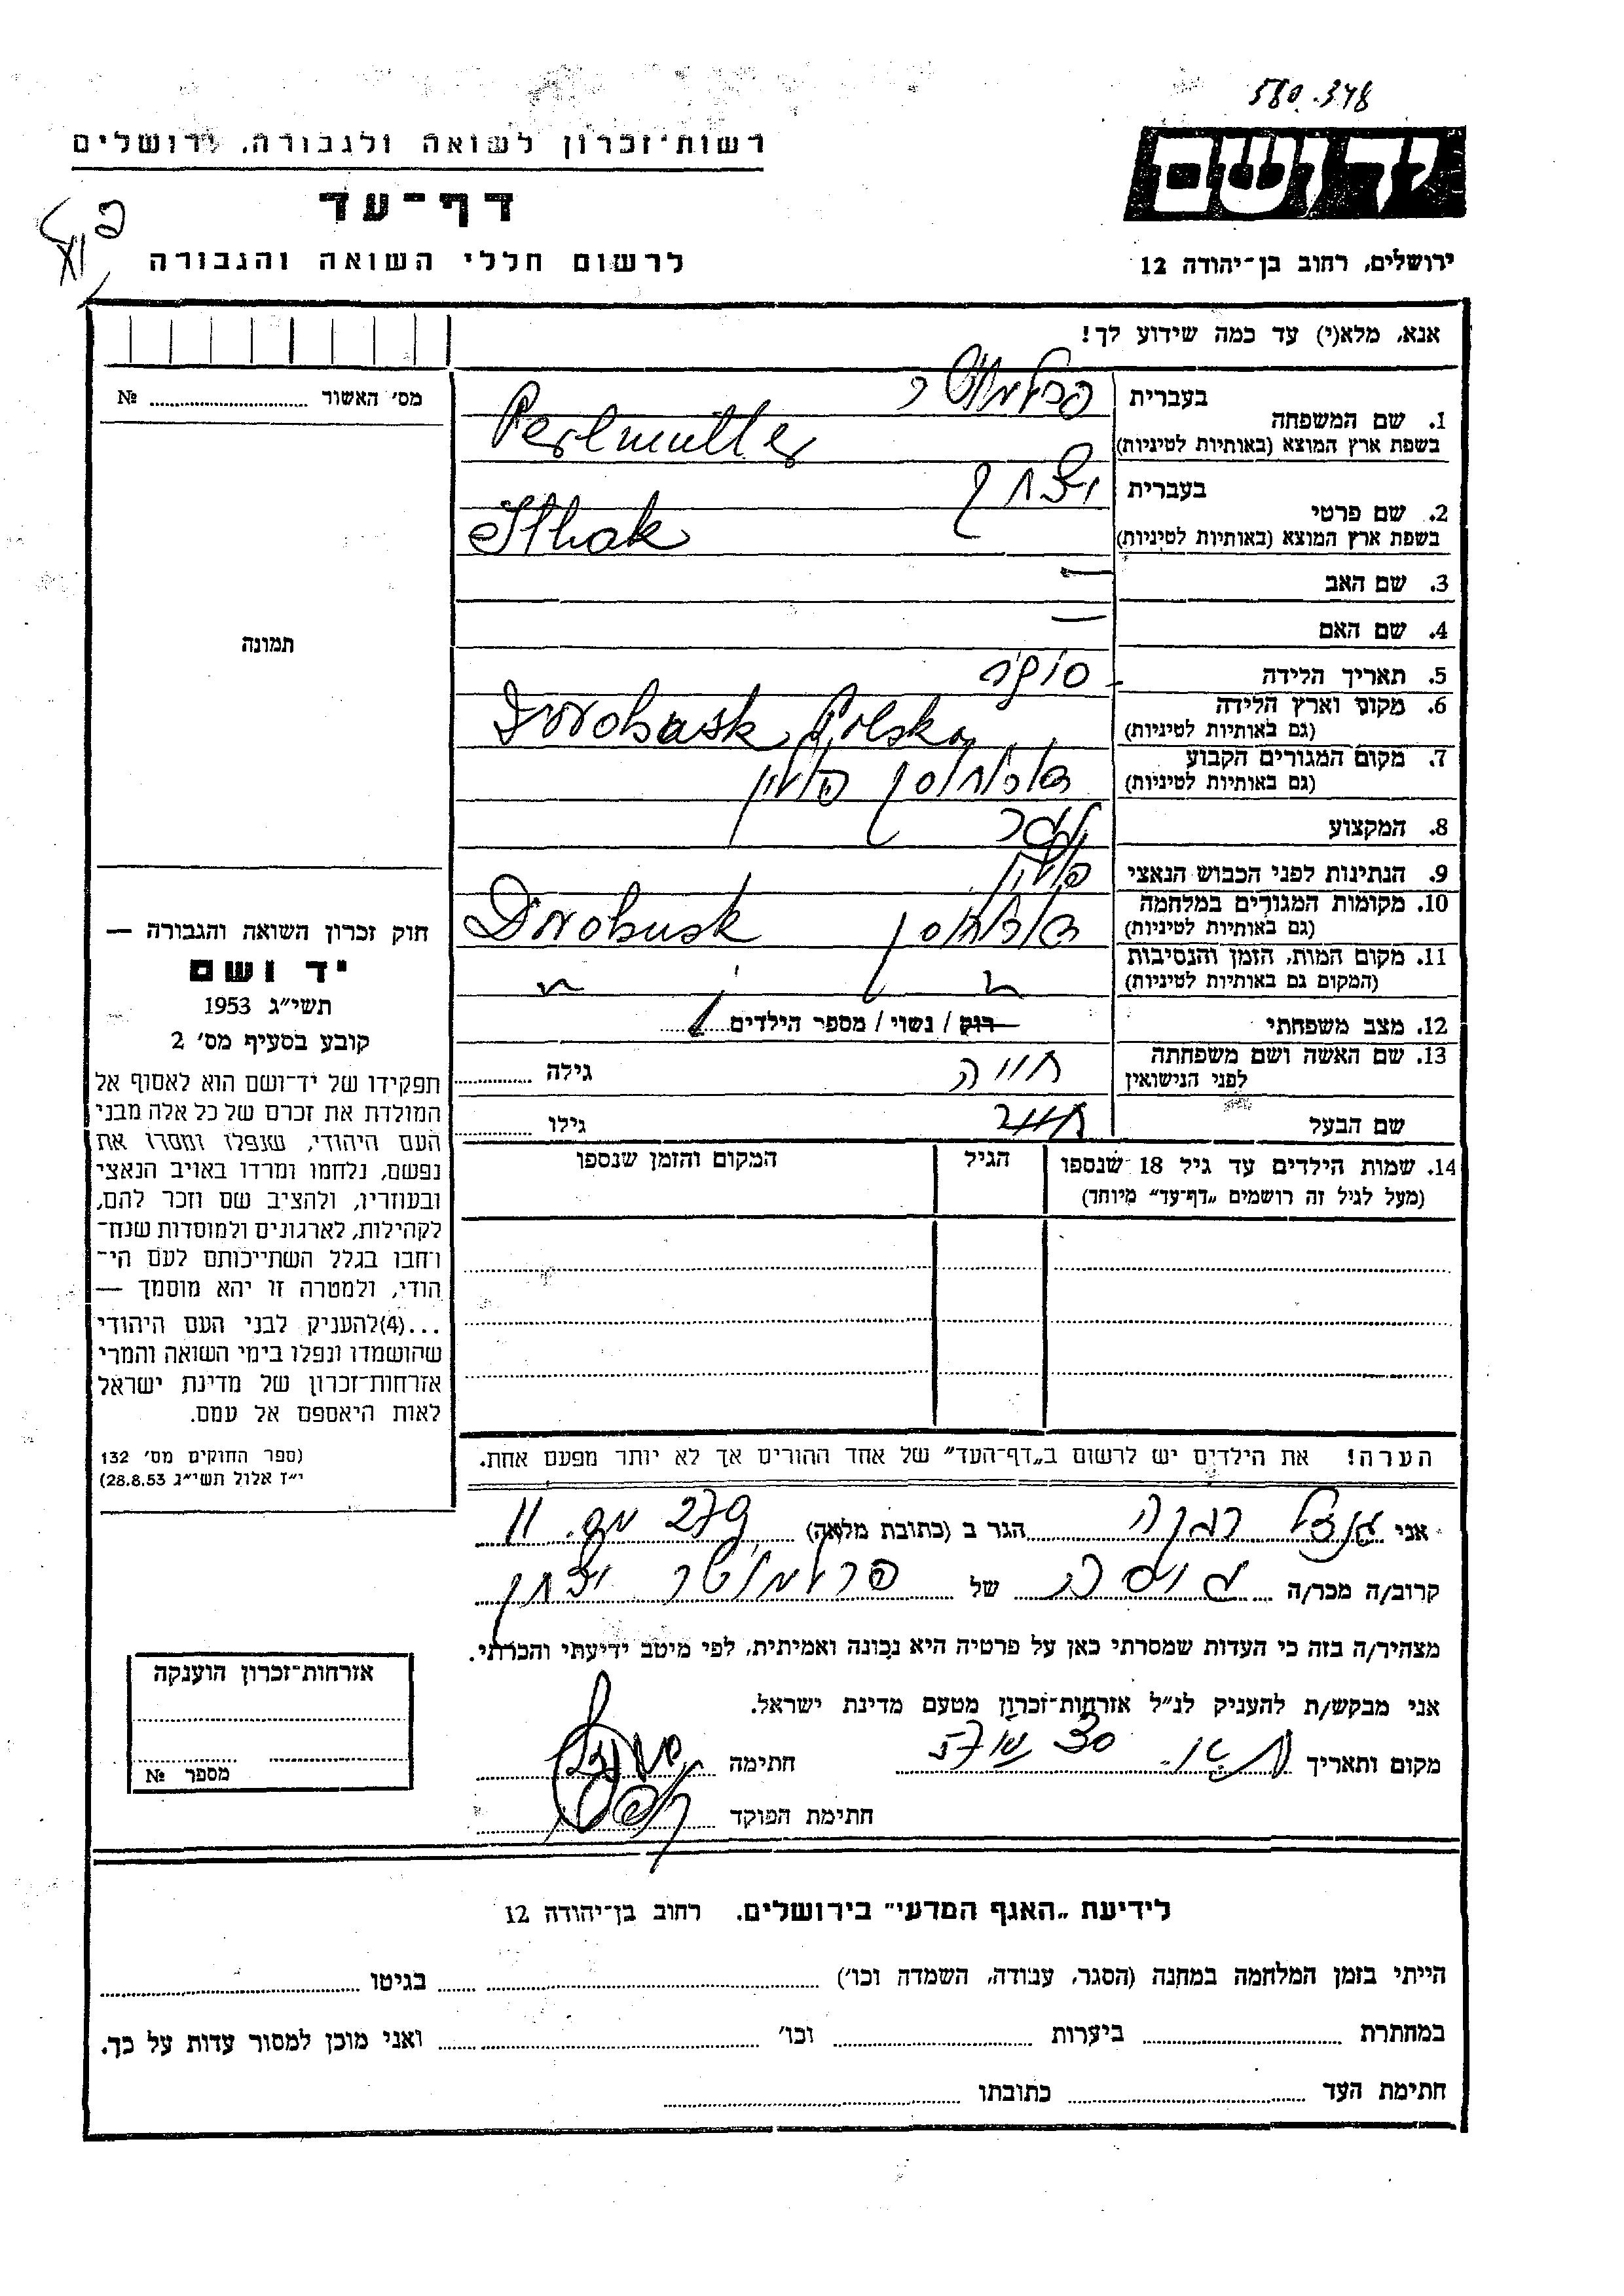 580.348
יד ושם
רשות־זכרון לשואה ולגבורה, ירושלים
דף־עד
לרשום חללי השואה והגבורה
ירושלים, רחוב בן־יהודה 12
אנא, מלא(י) עד כמה שידוע לך!
מס׳ האשור № ........
תמונה
בעברית פרלמוטר
1. שם המשפחה
בשפת ארץ המוצא (באותיות לטיניות) Perlmutter
בעברית יצחק
2. שם פרטי
בשפת ארץ המוצא (באותיות לטיניות) Ithak
3. שם האב —
4. שם האם —
5. תאריך הלידה
6. מקום וארץ הלידה
(גם באותיות לטיניות) Polska
7. מקום המגורים הקבוע
(גם באותיות לטיניות) פולין
8. המקצוע
9. הנתינות לפני הכבוש הנאצי פולין
10. מקומות המגורים במלחמה
(גם באותיות לטיניות) Drobusk
11. מקום המות, הזמן והנסיבות
(המקום גם באותיות לטיניות)
12. מצב משפחתי רוק / נשוי / מספר הילדים
13. שם האשה ושם משפחתה
לפני הנישואין חווה גילה ........
שם הבעל גילו ........
14. שמות הילדים עד גיל 18 שנספו הגיל המקום והזמן שנספו
(מעל לגיל זה רושמים „דף־עד״ מיוחד)
הערה! את הילדים יש לרשום ב„דף־העד״ של אחד ההורים אך לא יותר מפעם אחת.
חוק זכרון השואה והגבורה —
יד ושם
תשי״ג 1953
קובע בסעיף מס׳ 2
תפקידו של יד־ושם הוא לאסוף אל
המולדת את זכרם של כל אלה מבני
העם היהודי, שנפלו ומסרו את
נפשם, נלחמו ומרדו באויב הנאצי
ובעוזריו, ולהציב שם וזכר להם,
לקהילות, לארגונים ולמוסדות שנח־
רחבו בגלל השתייכותם לעם הי־
הודי, ולמטרה זו יהא מוסמך —
...(4)להעניק לבני העם היהודי
שהושמדו ונפלו בימי השואה והמרי
אזרחות־זכרון של מדינת ישראל
לאות היאספם אל עמם.
(ספר החוקים מס׳ 132
י״ז אלול תשי״ג 28.8.53)
אני הגר ב (כתובת מלאה) 11
קרוב/ה מכר/ה של פרלמוטר יצחק
מצהיר/ה בזה כי העדות שמסרתי כאן על פרטיה היא נכונה ואמיתית, לפי מיטב ידיעתי והכרתי.
אני מבקש/ת להעניק לנ״ל אזרחות־זכרון מטעם מדינת ישראל.
מקום ותאריך חתימה
חתימת הפוקד
אזרחות־זכרון הוענקה
מספר №
לידיעת „האגף המדעי״ בירושלים. רחוב בן־יהודה 12
הייתי בזמן המלחמה במחנה (הסגר, עבודה, השמדה וכו׳) ........ בגיטו ........
במחתרת ........ ביערות ........ וכו׳ ........ ואני מוכן למסור עדות על כך.
חתימת העד ........ כתובתו ........